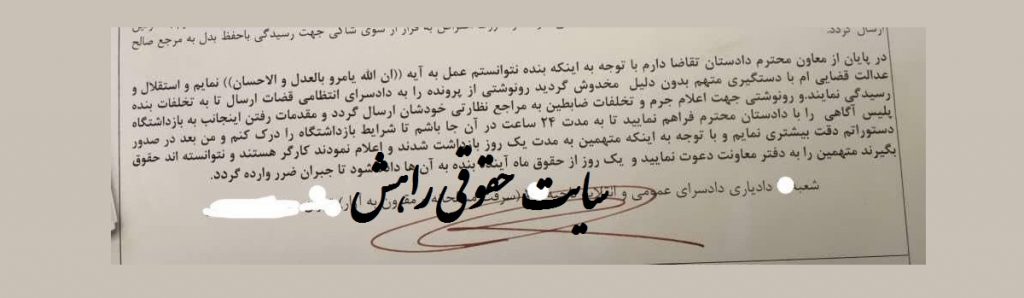 ارسال گردد.
قرار از سوی شاکی جهت رسیدگی باحفظ بدل به مرجع صالح
در پایان از معاون محترم دادستان تقاضا دارم با توجه به اینکه بنده نتوانستم عمل به آیه ((ان الله یامرو بالعدل و الاحسان)) نمایم و استقلال و
عدالت قضایی ام با دستگیری متهم بدون دلیل مخدوش گردید رونوشتی از پرونده را به دادسرای انتظامی قضات ارسال تا به تخلفات بنده
رسیدگی نمایند.و رونوشتی جهت اعلام جرم و تخلفات ضابطین به مراجع نظارتی خودشان ارسال گردد و مقدمات رفتن اینجانب به بازداشتگاه
پلیس آگاهی را با دادستان محترم فراهم نمایید تا به مدت ۲۴ ساعت در آن جا باشم تا شرایط بازداشتگاه را درک کنم و من بعد در صدور
دستوراتم دقت بیشتری نمایم و با توجه به اینکه متهمین به مدت یک روز بازداشت شدند و اعلام نمودند کارگر هستند و نتوانسته اند حقوق
بگیرند متهمین را به دفتر معاونت دعوت نمایید و یک روز از حقوق ماه آینده بنده به آن ها داده شود تا جبران ضرر وارده گردد.
دادیاری دادسرای عمومی و
سایت حقوقی راهش